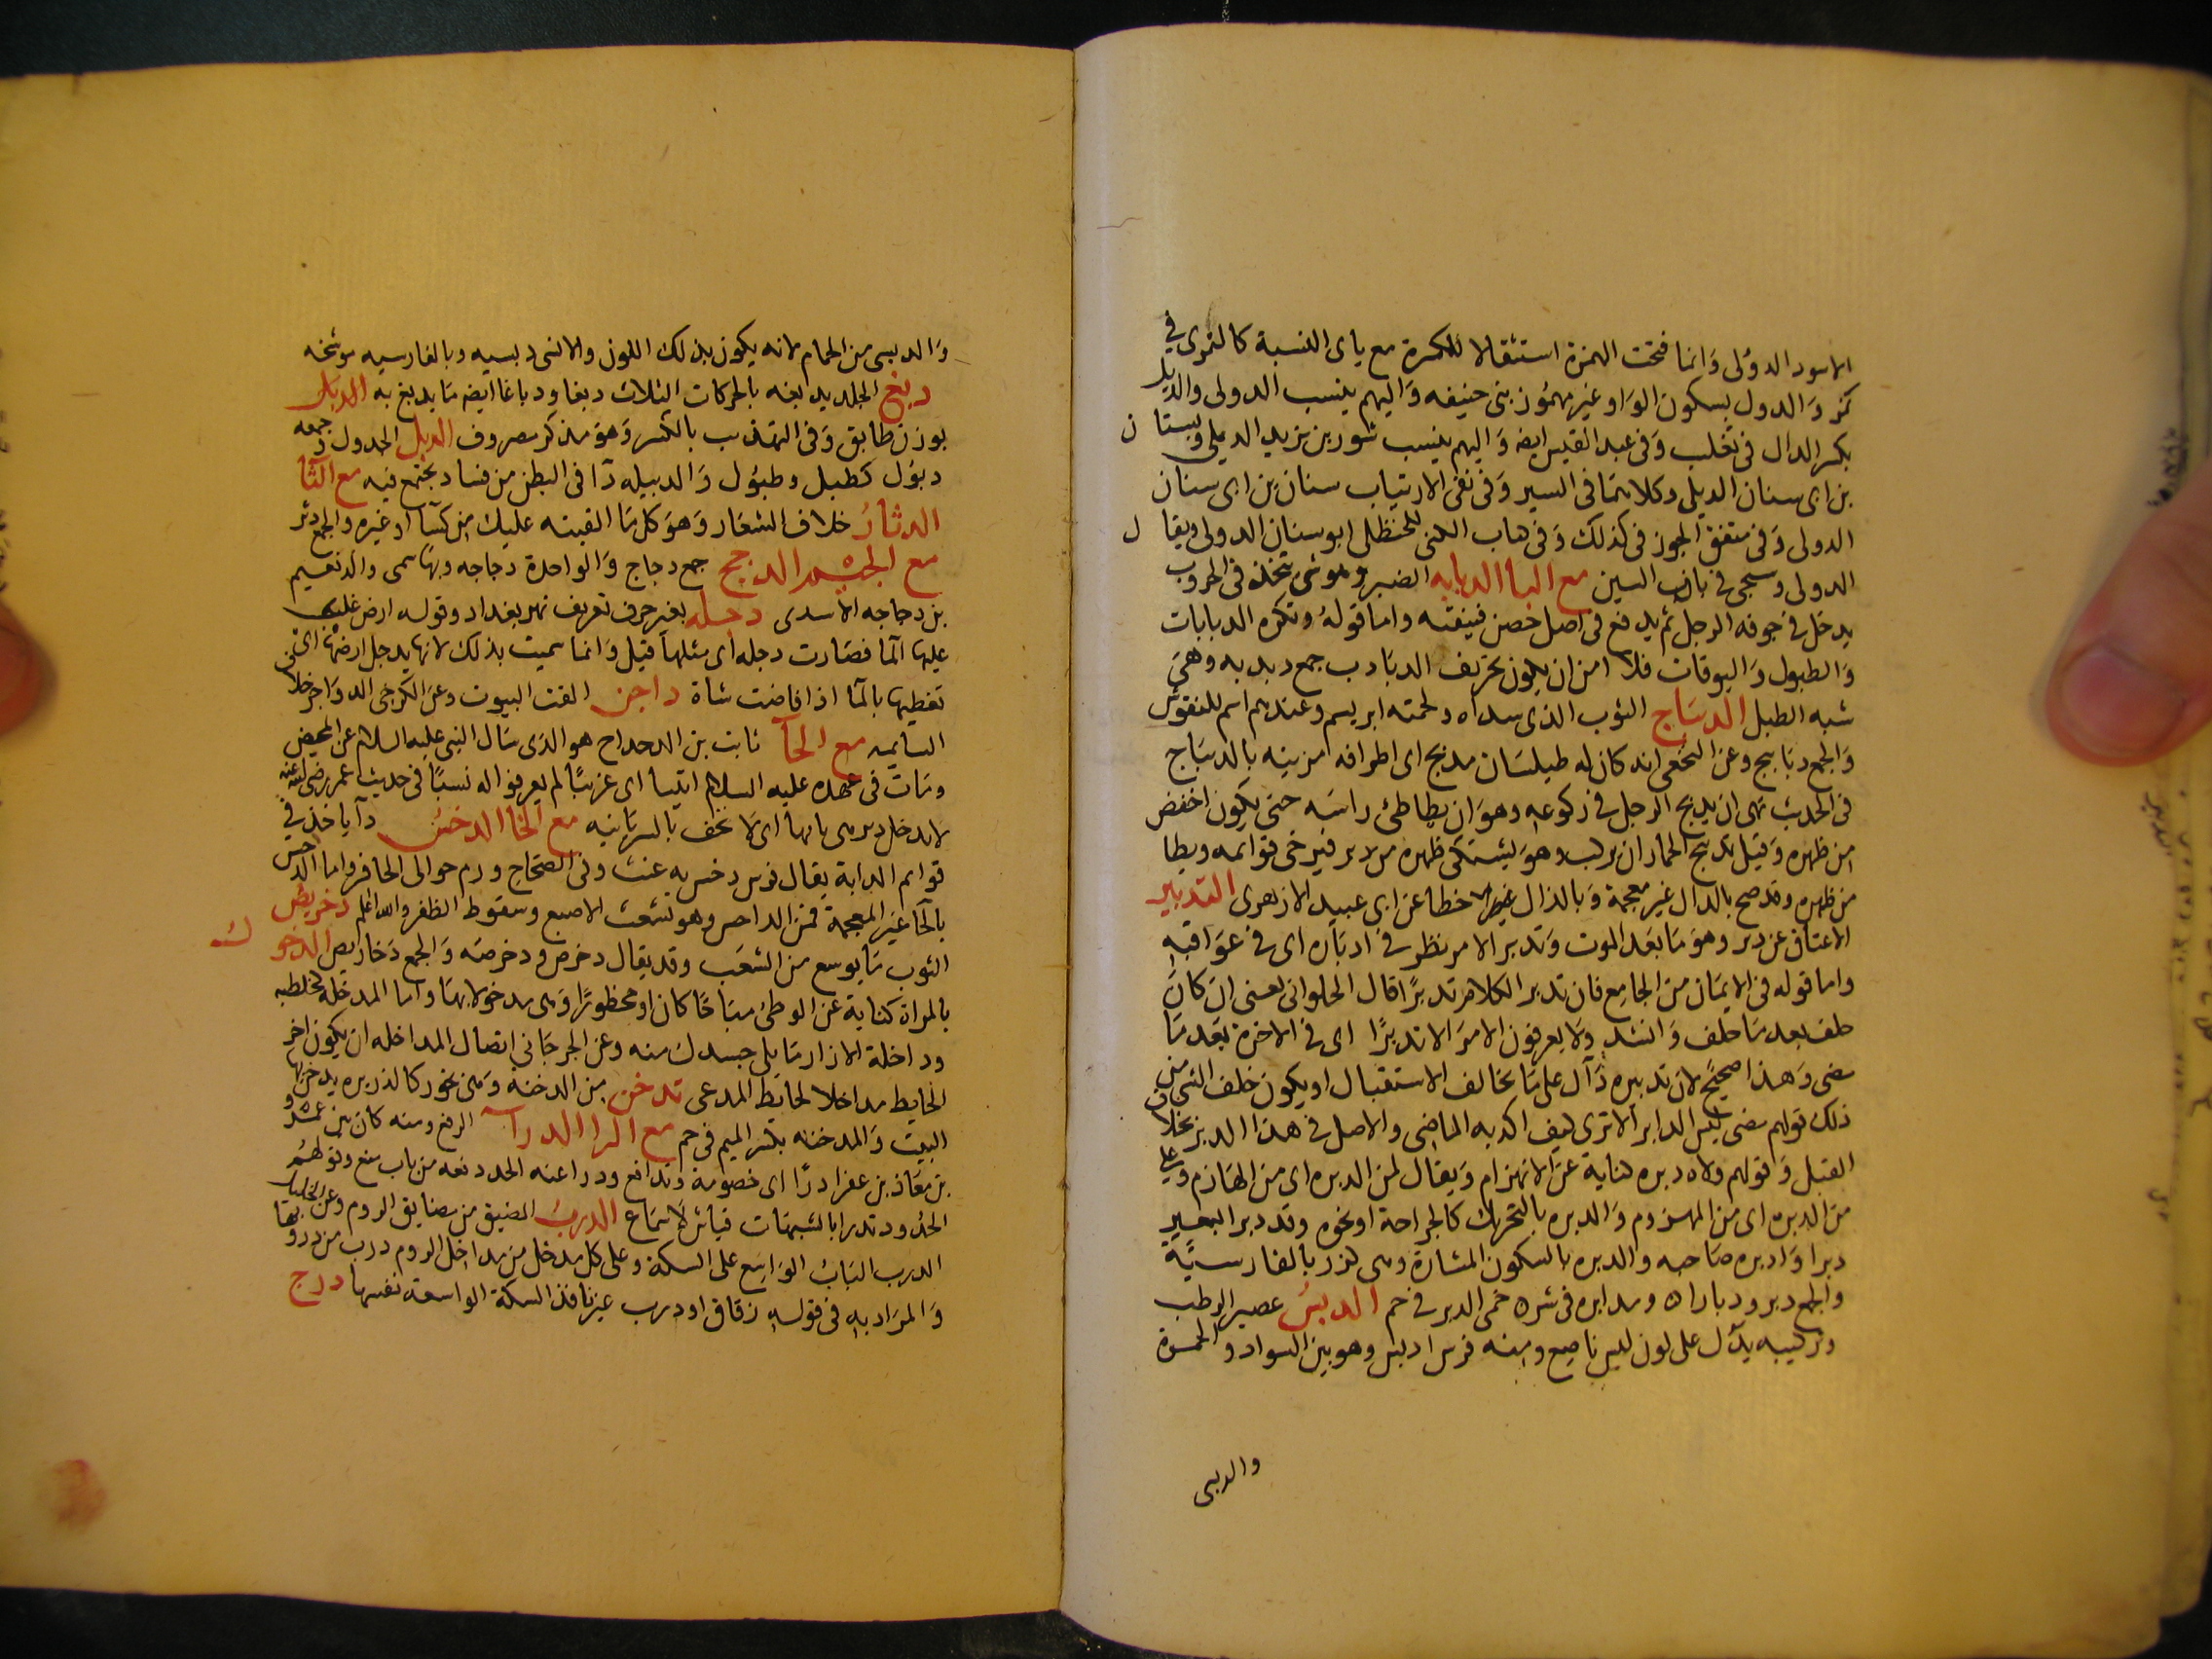 الاسود الدؤلى وانما فتحت الهمزة استثقالا للكسرة مع ياى النسبة كالنمرى في
نمر والدول بسكون الواو غير مهموز بنى حنيفه واليهم ينسب الدولى والديل
بكسر الدال فى تغلب وفى عبد القيس ايضا واليهم ينسب ثور بن يزيد الديلى وسنان
بن ابى سنان الديلى وكلاهما فى السير وفى نفى الارتياب سنان بن ابى سنان
الدولى وفى متفق الجوزقى كذلك وفى كتاب الكنى للحنظلى ابو سنان الدولى ويقال
الدولى وسيجى فى باب السين مع البا الدبابه الضبر وهو شى يتخذ فى الحروب
يدخل فى جوفه الرجل ثم يدفع فى اصل حصن فينقبه واما قوله وتكره الدبابات
والطبول والبوقات فلا امن ان يكون تحريف الدبادب جمع دبدبه وهى
شبه الطبل الديباج الثوب الذى سداه ولحمته ابريسم وعندهم اسم للنقوش
والجمع دبابيج وعن النخعى انه كان له طيلسان مدبج اى اطرافه مزينه بالديباج
فى الحديث نهى ان يدبح الرجل فى ركوعه وهو ان يطاطئ راسه حتى يكون اخفض
من ظهره وقيل تدبيح الحمار ان يركب وهو يشتكى ظهره من دبر فيرخى قوائمه ويطا
من ظهره وقد صح بالدال غير معجمة وبالذال خطا عن ابى عبيد الازهرى التدبير
الاعتاق عن دبر وهو ما بعد الموت وتدبر الامر نظر فى ادباره اى فى عواقبه
واما قوله فى الايمان من الجامع فان تدبر الكلام تدبرا قال الحلوانى يعنى ان كان
حلف بعد ما حلف وانشد ولا يعرفون الامر الا تدبرا اى فى الاخرة بعد ما
مضى وهذا صحيح لان تدبيره دال على ما يخالف الاستقبال او يكون خلف الشى من
ذلك قولهم مضى امس الدابر الا ترى كيف اكد به الماضى والاصل فى هذا الدبر بخلاف
القبل وقولهم ولاه دبره كناية عن الانهزام ويقال لمن الدبره اى من الهازم وعلى
من الدبره اى من المهزوم والدبره بالتحريك كالجراحة او نحوه وقد دبر البعير
دبرا وادبره صاحبه والدبره بالسكون المشارة وهى كزر بالفارسية
والجمع دبر ودبارات ومدابره فى شره حمى الدبر فى حم الدبس عصير الرطب
وتركيبه يدل على لون ليس ناصع ومنه فرس ادبس وهو بين السواد والحمرة
والدبسى
والدبسى من الحمام لانه يكون بذلك اللون والانثى دبسيه وبالفارسيه موسخه
دبغ الجلد يدبغه بالحركات الثلاث دبغا ودباغا ايضا ما يدبغ به الدابق
بوزن طابق وفى التهذيب بالكسر وهو مذكر مصروف الدبل الجدول وجمعه
دبول كطبل وطبول والدبيله دا فى البطن من فساد يجتمع فيه مع الثا
الدثار خلاف الشعار وهو كل ما القيته عليك من كسآ او غيره والجمع دثر
مع الجيم الدجج جمع دجاج والواحدة دجاجه وبها سمى والد نعيم
بن دجاجه الاسدى دجله بغير حرف تعريف نهر بغداد وقوله ارض غلب
عليها المآ فصارت دجله اى مثلها قيل وانما سميت بذلك لانها يدجل ارضها اى
تغطيها بالمآ اذا فاضت شاة داجن الفت البيوت وعن الكرخى الدواجن خلاف
السايمه مع الحآ ثابت بن الدحداح هو الذى سال النبى عليه السلام عن المحيض
ومات فى عهده عليه السلام اتيا اى غريبا لم يعرفوا له نسبا فى حديث عمر رضى الله عنه
لا تدحل اى لا تخف بالسريانيه مع الخا الدخس دآ ياخذ في
قوائم الدابة يقال فرس دخس به عنت وفى الصحاح ورم حوالى الحافر واما الداحس
بالحآ غير المعجمة فمن الداحس وهو تشعث الاصبع وسقوط الظفر والله اعلم دخريص
الثوب ما يوسع من الشعب وقد يقال دخرص ودخرصه والجمع دخاريص الدخول
بالمراة كناية عن الوطئ مباحا كان او محظورا وهى مدخول بها واما المدخلة
وداخلة الازار ما يلى جسدك منه وعن الجرجانى اتصال المداخله ان يكون اخر
الحايط مداخلا لحايط المدعى تدخن من الدخنه وهى بخور كالذريره يدخن بها
البيت والمدخنه بكسر الميم فى جم مع الرا الدرآ الدفع ومنه كان بين عمر و
بن معاذ بن عفرا درا اى خصومة وتدافع ودرا عنه الحد دفعه من باب منع وقولهم
الحدود تدرا بالشبهات قياس لا سماع الدرب المضيق من مضايق الروم وعن الخليل
الدرب الباب الواسع على السكة وعلى كل مدخل من مداخل الروم درب من دروبها
والمراد به فى قوله زقاق او درب غير نافذ السكة الواسعة نفسها درج